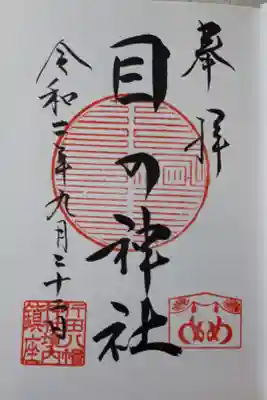 奉拝
目の神社
令和二年九月二十二日
片田八幡
境内
鎮座
めめ